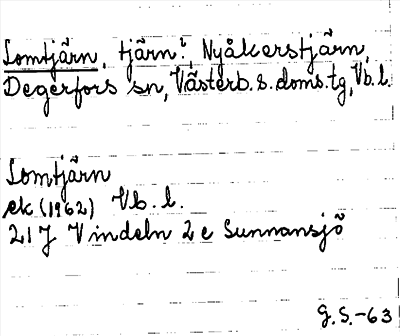 Lomtjärn, tjärn?, Nyåkerstjärn,
Degerfors sn, Västerb. s. doms. tg, Vb. l.
Lomtjärn
ek (1962) Vb. l.
21 J Vindeln 2 c Sunnansjö
G. S. -63